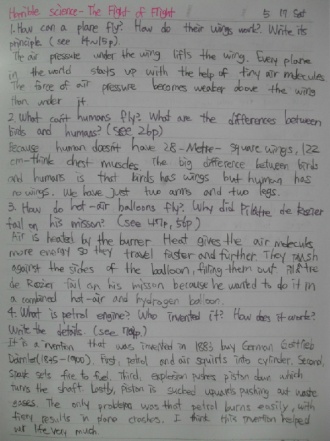 Horrible science - The Fight of Flight 5 17 Sat
1. How can a plane fly? How do their wings work? Write its
principle. (see 14~15p).
The air pressure under the wing lifts the wing. Every plane
in the world stays up with the help of tiny air molecules
The force of air pressure becomes weaker above the wing
than under it.
2. What can't humans fly? What are the differences between
birds and humans? (see 26p)
Because human doesn't have 28-Metre-square wings, 122
cm-think chest muscles. The big difference between birds
and humans is that birds has wings but human has
no wings. We have just two arms and two legs.
3. How do hot-air balloons fly? Why did Pilatre de Rozier
fail on his mission? (see 45p, 56p)
Air is heated by the burner. Heat gives the air molecules
more energy so they travel faster and further. They push
against the sides of the balloon, filling them out. Pilatre
de Rozier fail on his mission because he wanted to do it in
a combined hot-air and hydrogen balloon.
4. What is petrol engine? Who invented it? How does it works?
Write the details. (see
It is a invention that was invented in 1883 buy German Gottlieb
Daimler (1875-1900). First, petrol and air squirts into cylinder. Second,
Spark sets fire to fuel. Third, explosion pushes piston down which
turns the shaft. Lastly, Piston is sucked upwards pushing out waste
gases. The only problems was that petrol burns easily, with
firey results in plane crashes. I think this invention helped
our life very much.